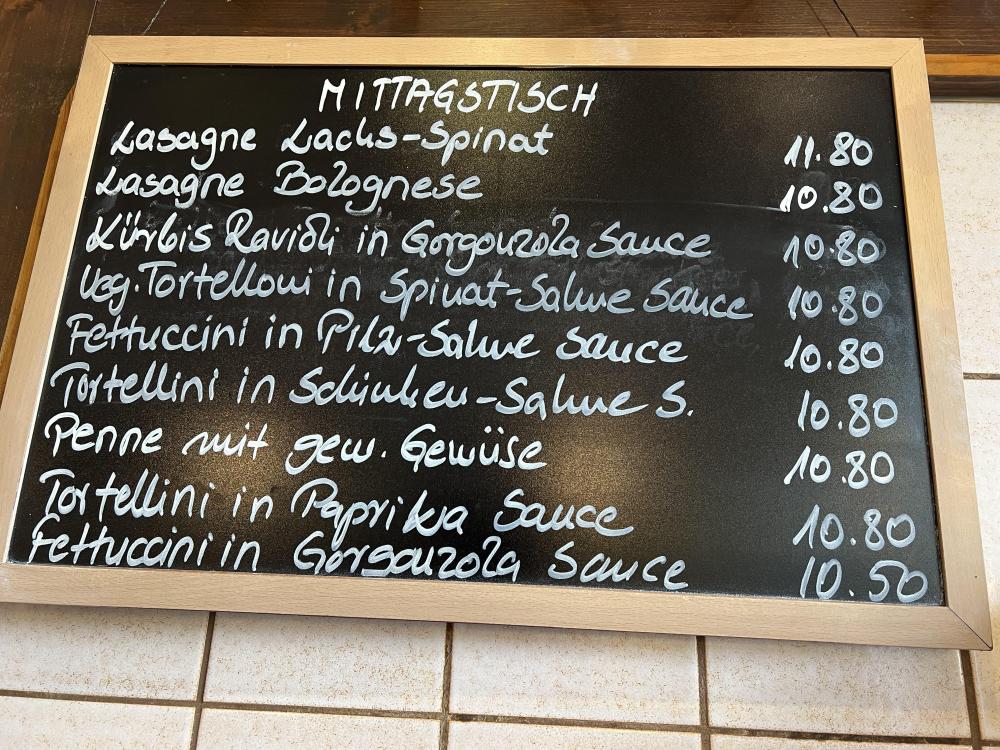 MITTAGSTISCH
Lasagne Lachs-Spinat 11.80
Lasagne Bolognese 10.80
Kürbis Ravioli in Gorgonzola Sauce 10.80
Veg. Tortelloni in Spinat-Sahne Sauce 10.80
Fettuccini in Pilz-Sahne Sauce 10.80
Tortellini in Schinken-Sahne S. 10.80
Penne mit gew. Gewüse 10.80
Tortellini in Paprika Sauce 10.80
Fettuccini in Gorgonzola Sauce 10.50